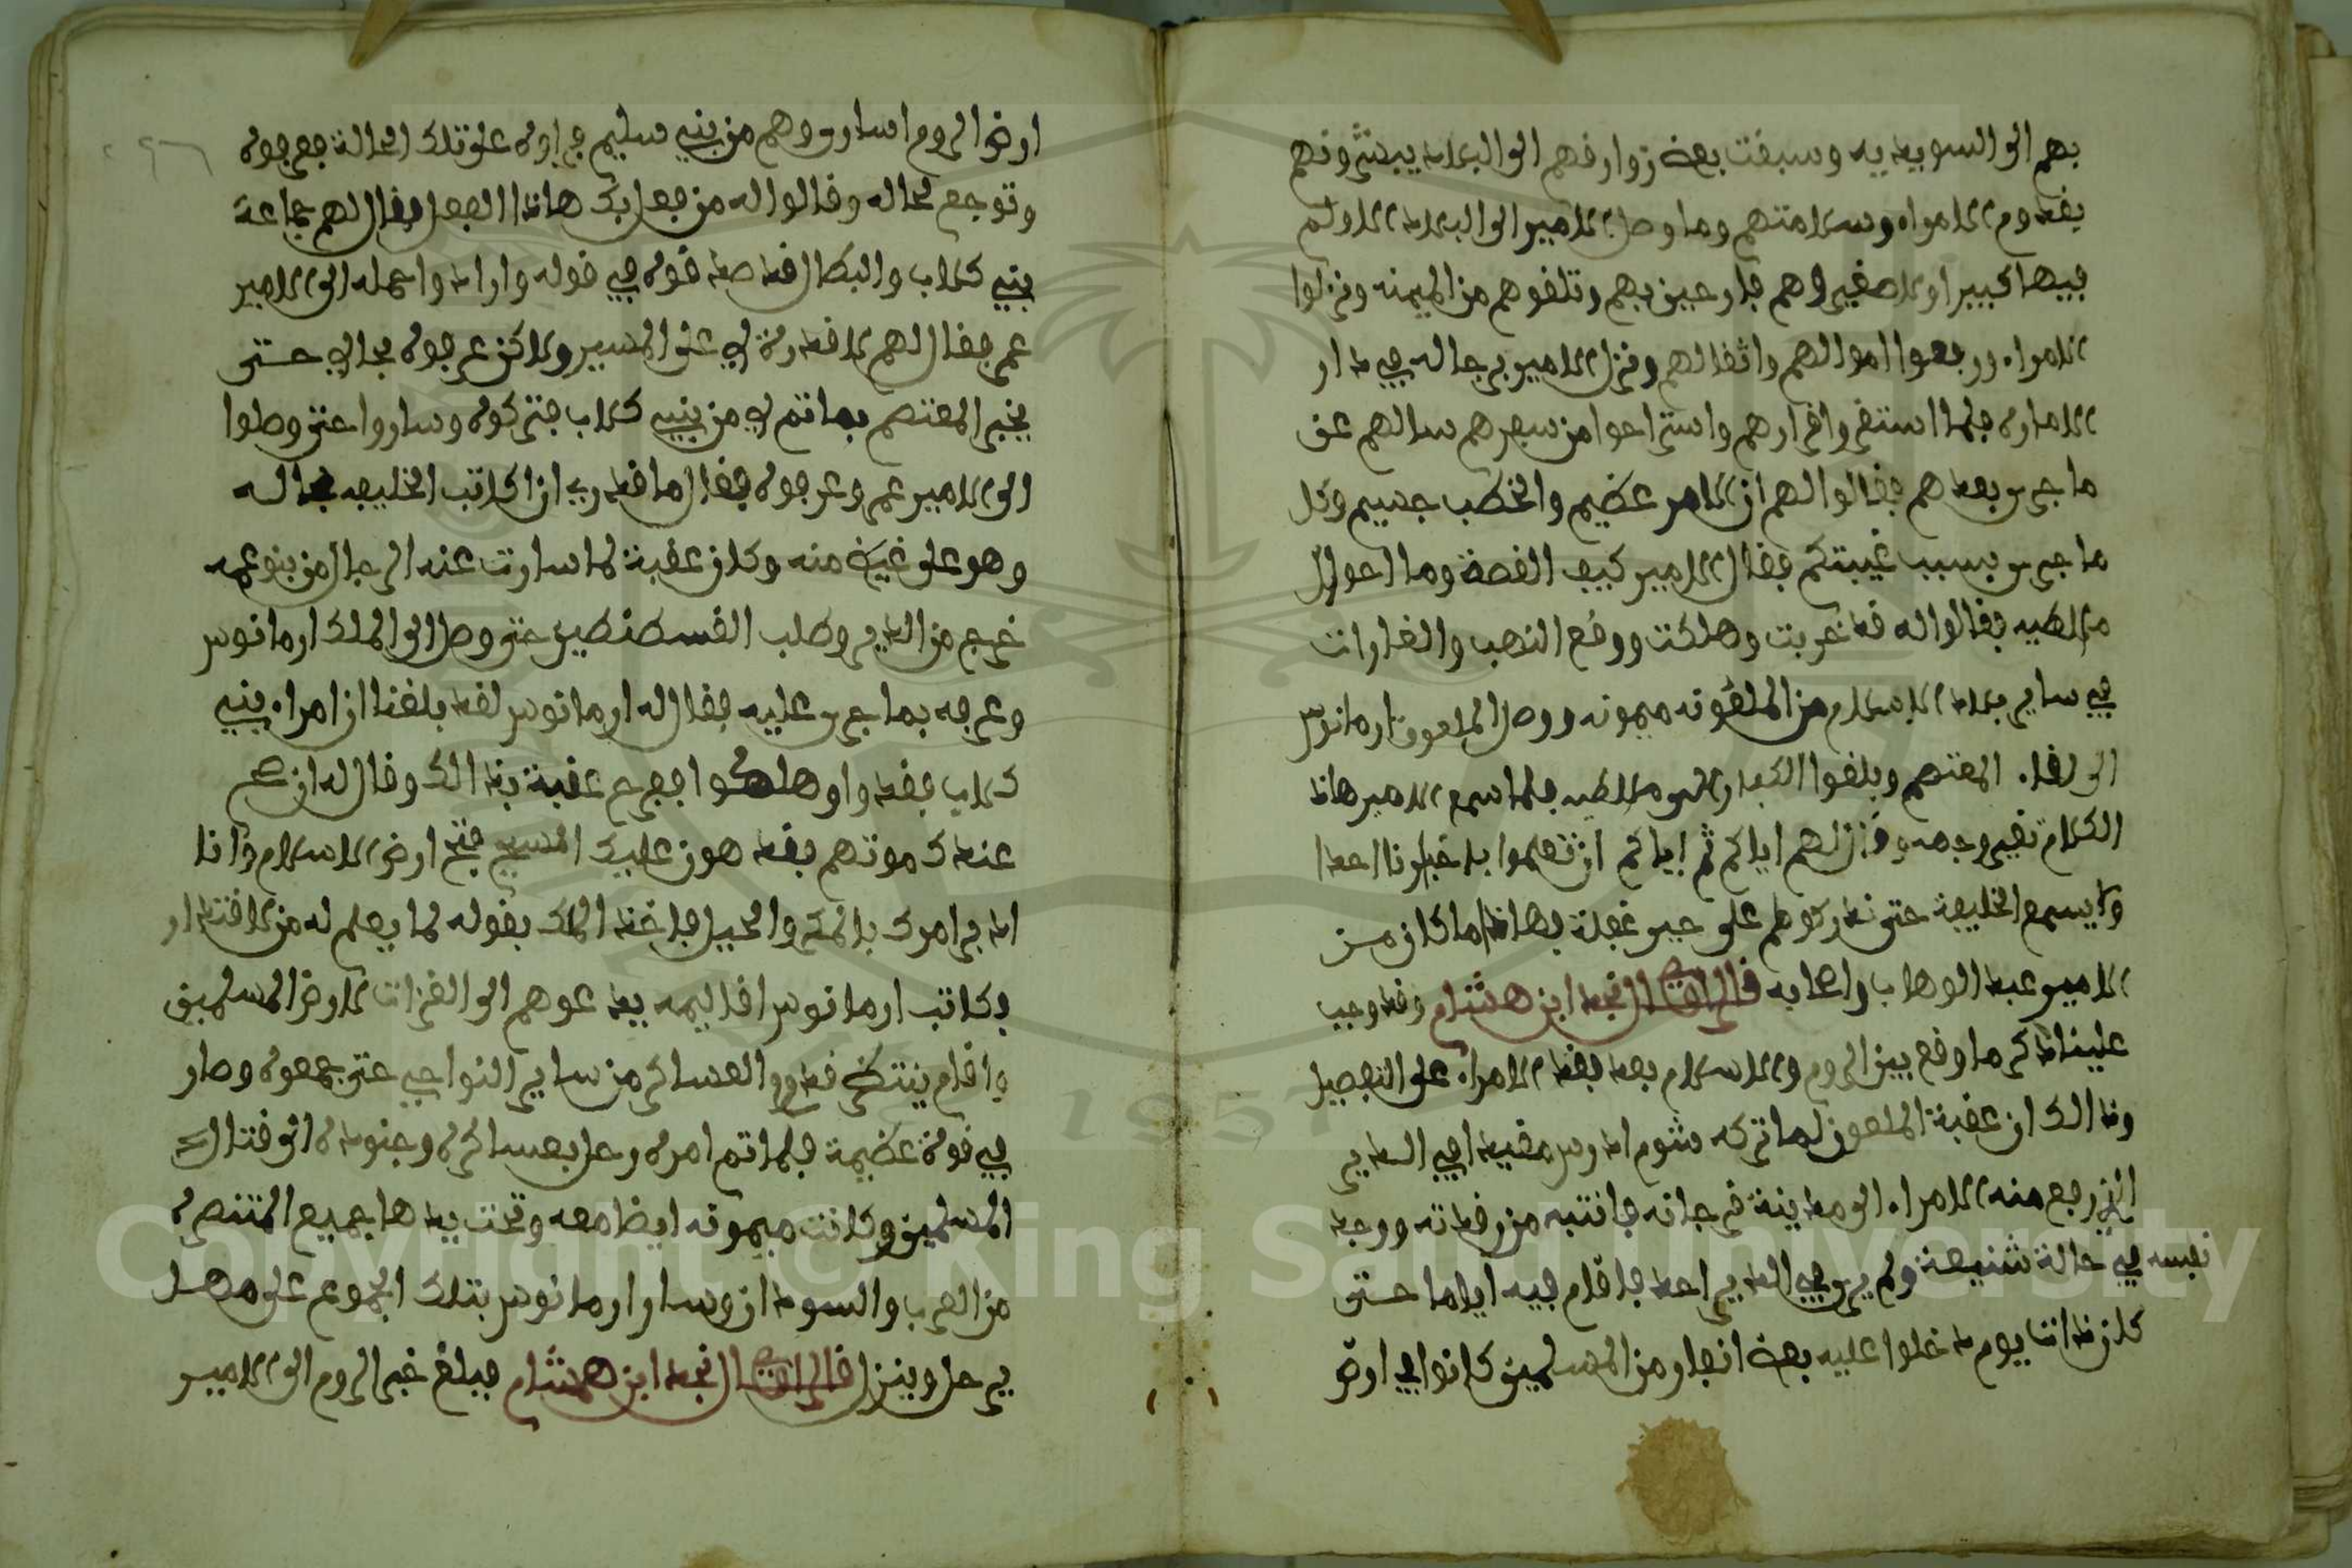 بهم الى السويديه وسبقت بعض زوارقهم الى البلاد يبشرونهم
بقدوم الامراء وسلامتهم وما وصل الامير الى البلاد الا ولم
فيها كبير او لا صغير الا وهم فارحين بهم وتلقوهم من الميمنه ونزلوا
الامراء ورفعوا اموالهم واثقالهم ونزل الامير برجاله في دار
الاماره فلما استقر واقرارهم واستراحوا من سفرهم سالهم عن
ما جرى بعدهم فقالوا لهم ان الامر عظيم والخطب جسيم وكل
ما جرى بسبب غيبتكم فقال الامير كيف القصة وما احوال
ملاطيه فقالوا له قد خربت وهلكت ووقع النهب والغارات
في ساير بلاد الاسلام من الملعونه ميمونه ووصل الملعون ارمانوس
الى لقاء المعتصم وبلغوا الكفار الى ملاطيه فلما سمع الامير هاذا
الكلام تغير وجهه وقال لهم اياكم ثم اياكم ان تعلموا باخبارنا احدا
ولا يسمع الخليفة حتى ندركوهم على حين غفلة فهاذا ما كان من
الامير عبد الوهاب واصحابه قال الراوي نجد ابن هشام وقد وجب
علينا ذكر ما وقع بين الروم والاسلام بعد فقد الامراء على التفصيل
وذالك ان عقبة الملعون لما تركه شوم ادرس مقيدا في الدير
الذي رجع منه الامراء الى مدينة فرجانه فانتبه من رقدته ووجد
نفسه في حالة شنيعة ولم يرى في الدير احد فاقام فيه اياما حتى
كان ذات يوم دخلوا عليه بعض انفار من المسلمين كانوا في ارض
ارض الروم اسارى وهم من بني سليم فراوه على تلك الحالة فعرفوه
وتوجع لحاله وقالوا له من فعل بك هاذا الفعل فقال لهم جماعة
بني كلاب والبطال قد صدقوه في قوله وارادوا حمله الى الامير
عمر فقال لهم لا قدرة لي على المسير ولاكن عرفوه بحالي حتى
يخبر المعتصم بما تم لي من بني كلاب فتركوه وساروا حتى وصلوا
الى الامير عمر وعرفوه فقال ما قدر به ان كاتب الخليفه بحاله
وهو على غيظ منه وكان عقبة لما سارت عنه الرجال من بنو عمه
خرج من الدير وطلب القسطنطين حتى وصل الى الملك ارمانوس
وعرفه بما جرى عليه فقال له ارمانوس لقد بلغنا ان امراء بني
كلاب فقدوا وهلكوا ففرح عقبة بذالك وقال له ان صح
عندك موتهم فقد هون عليك المسيح فتح ارض الاسلام وانا
ادبر امرك بالمكر والحيل فاخذ الملك بقوله لما يعلم له من الاقتدار
وكاتب ارمانوس اقاليمه يدعوهم الى الغزات لارض المسلمين
واقام ينتظر قدوم العساكر من ساير النواحي حتى جمعوه وصار
في قوة عظيمة فلما تم امره رحل بعساكره وجنوده الى قتال
المسلمين وكانت ميمونه ايضا معه وتحت يدها جميع المتنصره
من العرب والسودان وسار ارمانوس بتلك الجموع على مهل
يرحل وينزل قال الراوي نجد ابن هشام فبلغ خبر الروم الى الامير